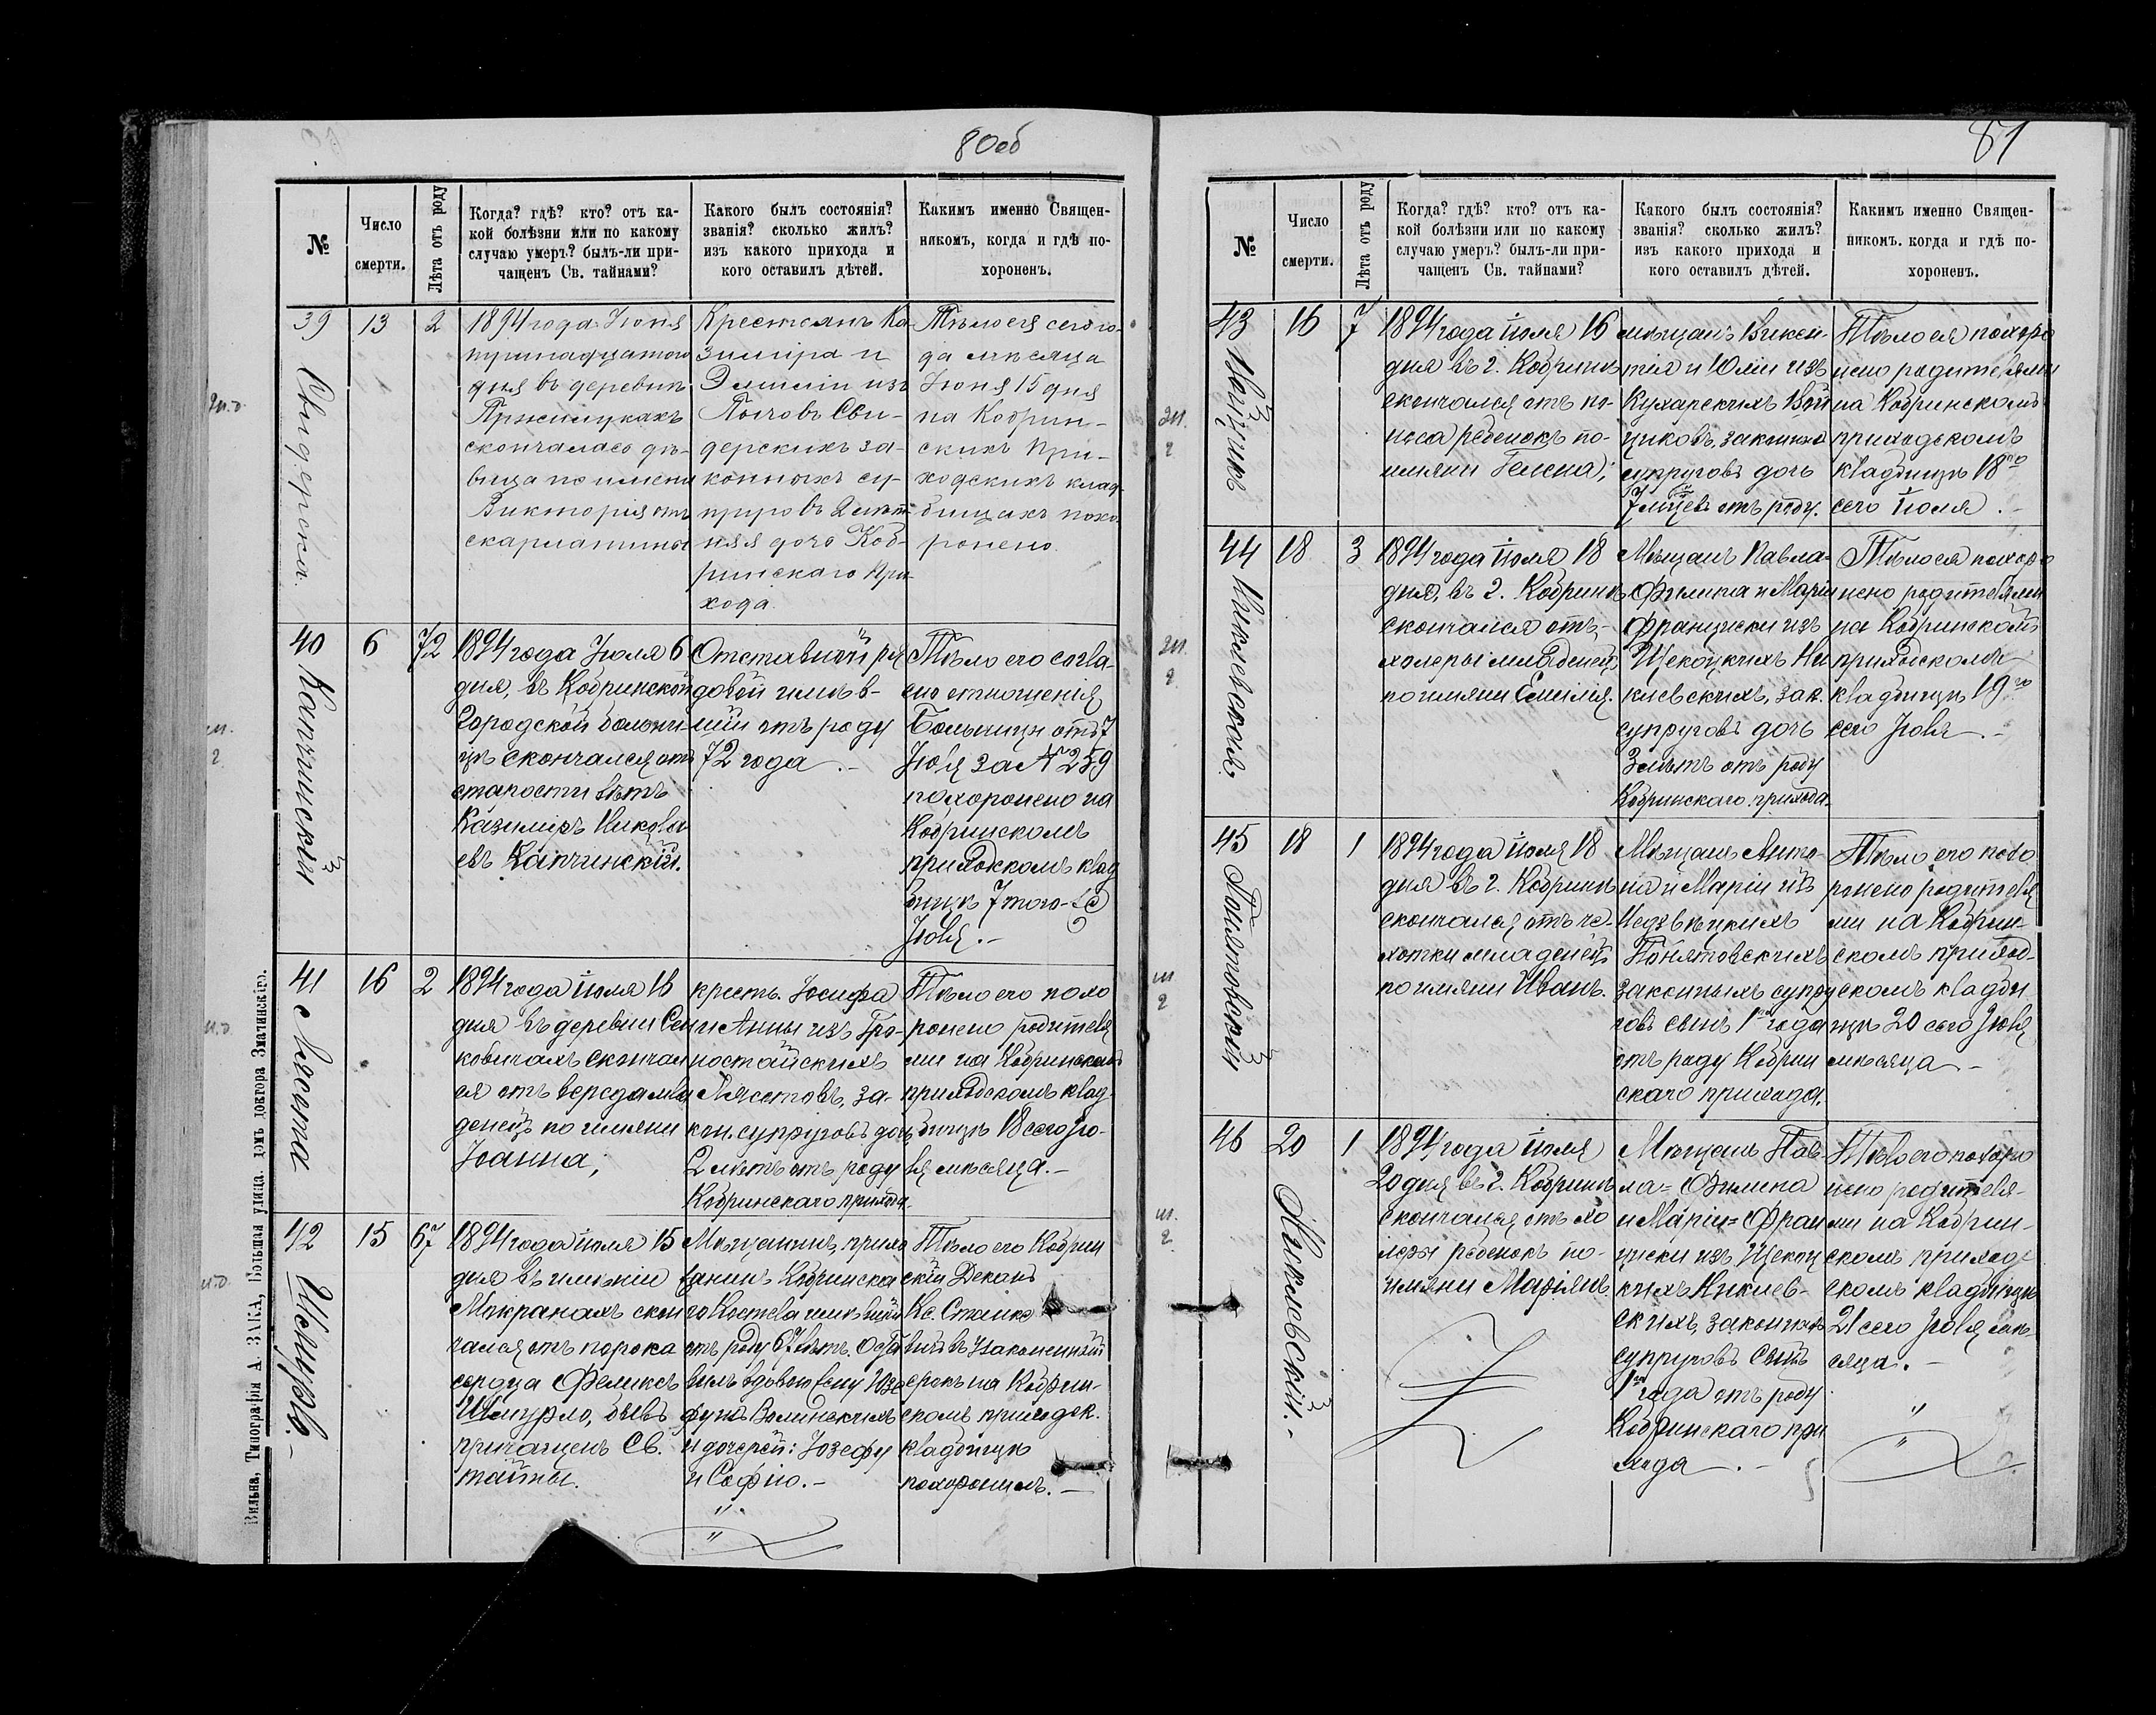 80об
№
Число
смерти.
Лѣта отъ роду
Когда? гдѣ? кто? отъ ка-
кой болѣзни или по какому
случаю умеръ? былъ-ли при-
чащенъ Св. тайнами?
Какого былъ состоянія?
званія? сколько жилъ?
изъ какого прихода и
кого оставилъ дѣтей.
Какимъ именно Священ-
никомъ, когда и гдѣ по-
хороненъ.
39
13
2
1894 года Іюня
тринадцатого
дня въ деревнѣ
скончалась дѣ-
вица по имени
Викторія отъ
скарлатины
Крестьянъ Ка-
зиміра и
Эмиліи изъ
Сви-
дерскихъ за-
конныхъ су-
пруговъ 2 лѣт-
няя дочь Коб-
ринскаго При-
хода.
Тѣло ея сего го-
да мѣсяца
Іюня 15 дня
на Кобрин-
скихъ При-
ходскихъ клад-
бищахъ похо-
ронено.
40
Капчинскій
6
72
1894 года Іюля 6
дня, въ Кобринской
Городской больни-
цѣ скончался отъ
старости лѣтъ
Казиміръ Никола
евъ Капчинскій.
Отставной ря
довой имѣв-
шій отъ роду
72 года.-
Тѣло его согла-
сно отношенія
Больницы отъ 7
Іюля за № 259
похоронено на
Кобринскомъ
приходскомъ клад
бищѣ 7 того-же
Іюля.-
41
16
2
1894 года іюля 16
дня въ деревни Сен
ковичахъ скончал
ся отъ вереда мла
денецъ по имени
Іоанна;
кресть. Іосифа
и Анны изъ Гро-
ностайскихъ
за-
кон. супруговъ дочь
2 лѣтъ отъ роду
Кобринскаго прихода.
Тѣло его похо
ронено родителя
ми на Кобринскомъ
приходскомъ клад-
бищѣ 18 сего Ію-
ля мѣсяца.-
42
Шмурло.-
15
67
1894 года іюля 15
дня въ имѣніи
Мокранахъ скон
чался отъ порока
сердца Феликсъ
Шмурло, бывъ
причащенъ Св.
тайны.
Мѣщанинъ, прихо
жанинъ Кобринска
го Костела имѣвшій
отъ роду 67 лѣтъ. Оста
вилъ вдовою жену Юзе
фу изъ Волинскихъ
и дочерей: Іозефу
и Софію.-
Тѣло его Кобрин
скій Деканъ
Кс. Станке
вичъ въ Узаконенный
срокъ на Кобрин-
скомъ приходск.
кладбищѣ
похоронилъ.-
Вильна, Типографія А. ЗАКА, Большая улица. домъ доктора Змачинскаго.
81
№
Число
смерти.
Лѣта отъ роду
Когда? гдѣ? кто? отъ ка-
кой болѣзни или по какому
случаю умеръ? былъ-ли при-
чащенъ Св. тайнами?
Какого былъ состоянія?
званія? сколько жилъ?
изъ какого прихода и
кого оставилъ дѣтей.
Какимъ именно Священ-
никомъ. когда и гдѣ по-
хороненъ.
43
16
7
1894 года іюля 16
дня въ г. Кобринѣ
скончался отъ по-
носа ребенокъ по-
имяни Гелена;
мѣщанъ Викен-
тія и Юліи изъ
Кухарскихъ Вой
циковъ, законныхъ
супруговъ дочь
7 мѣсцевъ отъ роду.
Тѣло ея похоро
нено родителями
на Кобринскомъ
приходскомъ
кладбищѣ 18го
сего Іюля.-
44
18
3
1894 года іюля 18
дня, въ г. Кобринѣ
скончался отъ-
холеры младенецъ
по имяни Емилія.
Мѣщанъ Павла-
Филипа и Маріи
Франциски изъ
Щекоцкихъ Ни
киевскихъ, зак.
супруговъ дочь
3 лѣтъ отъ роду
Кобринскаго прихода.
Тѣло ея похоро
нено родителями
на Кобринскомъ
приходскомъ
кладбищѣ 19го
сего Іюля.-
45
Понятовскій
18
1
1894 года іюля 18
дня въ г. Кобринѣ
скончался отъ че-
хотки младенецъ
по имяни Иванъ.
Мѣщанъ Анто-
на и Маріи изъ
Понятовскихъ
законныхъ супру
говъ сынъ 1го года
отъ роду Кобрин
скаго прихода.
Тѣло его похо
ронено родителя
ми на Кобрин-
скомъ приход-
скомъ кладби
щѣ 20 сего Іюля
мѣсяца-
46
20
1
1894 года іюля
20 дня въ г. Кобринѣ
скончался отъ хо
леры ребенокъ по-
имяни Маріянъ
Мѣщанъ Пав-
ла=Филипа
и Маріи=Фран
циски изъ Щекоц
кихъ Никиев-
скихъ, законныхъ
супруговъ Сынъ
1го года отъ роду
Кобринскаго при
хода.-
Тѣло его похоро
нено родителя-
ми на Кобрин-
скомъ приход
скомъ кладбищѣ
21 сего Іюля мѣ-
сяца.-